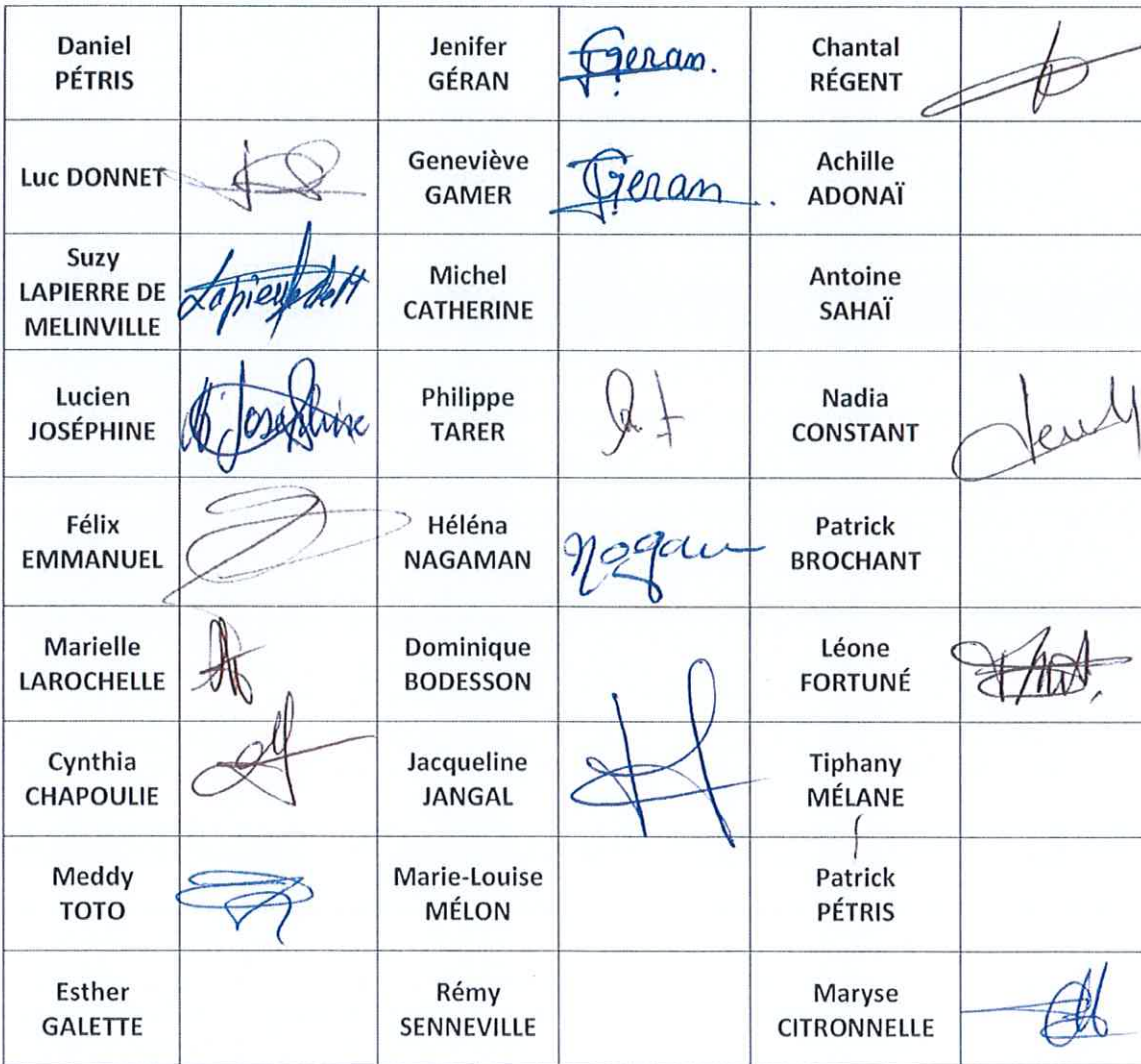 Daniel
PÉTRIS
Jenifer
GÉRAN
Geran.
Chantal
RÉGENT
Luc DONNET
Geneviève
GAMER
Geran
Achille
ADONAÏ
Suzy
LAPIERRE DE
MELINVILLE
Michel
CATHERINE
Antoine
SAHAÏ
Lucien
JOSÉPHINE
Josephine
Philippe
TARER
Nadia
CONSTANT
Félix
EMMANUEL
Héléna
NAGAMAN
Patrick
BROCHANT
Marielle
LAROCHELLE
Dominique
BODESSON
Léone
FORTUNÉ
Cynthia
CHAPOULIE
Jacqueline
JANGAL
Tiphany
MÉLANE
Meddy
TOTO
Marie-Louise
MÉLON
Patrick
PÉTRIS
Esther
GALETTE
Rémy
SENNEVILLE
Maryse
CITRONNELLE